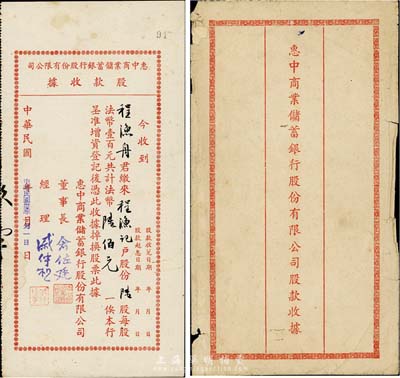 91
惠中商業儲蓄銀行股份有限公司
股款收據
今收到
程漁舟君繳來程漁記戶股份陸股每股
法幣壹百元共計法幣陸佰元一俟本行
呈准增資登記後憑此收據掉換股票此據
股款收兌日期 年 月 日
股款收息日期 年 月 日
惠中商業儲蓄銀行股份有限公司
董事長
俞佐廷
經理
戚仲樵
中華民國
日
惠中商業儲蓄銀行股份有限公司股款收據